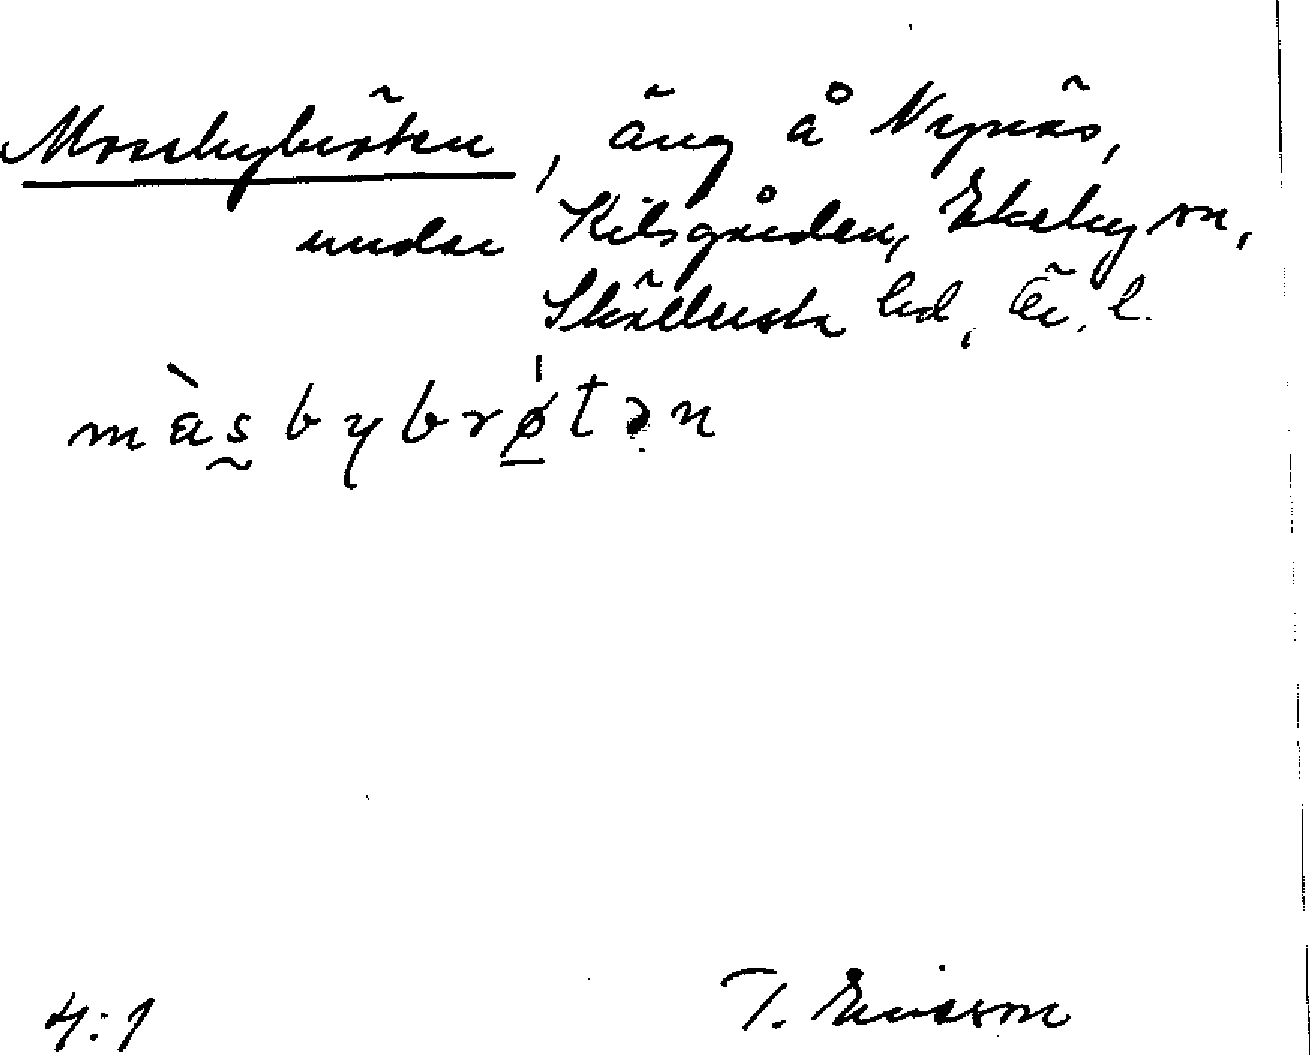 Mossbybröten, äng å Nynäs,
under Kilsgården, Ekeby sn,
Sköllersta hd, Ör. l.
màsbybrø̱tən
4:1 T. Ericsson